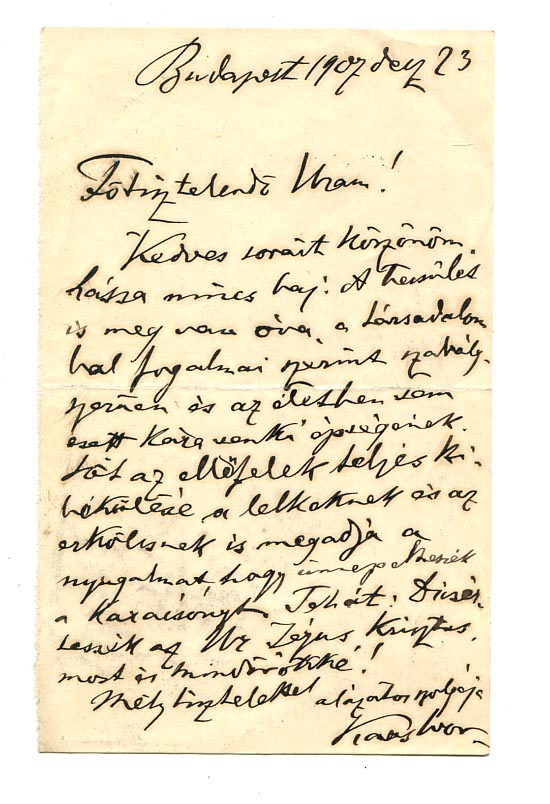 Budapest 1907 dez 23
Főtisztelendő Uram!
Kedves sorait köszönöm.
hásza nincs baj. A becsület
is meg van óva, a társadalom
bal fogalmai szerint szabály-
szerűen és az életben sem
esett kára senki épségének.
Sőt az ellőfelek teljes ki-
békülése a lelkeknek és az
erkölcsnek is megadja a
nyugalmat hogy ünnepelhessék
a karácsonyt. Tehát: Dicsér-
tessék az Úr Jézus Krisztus,
most és mindörökké!
Mély tisztelettel alázatos szolgája
Kaas Ivor